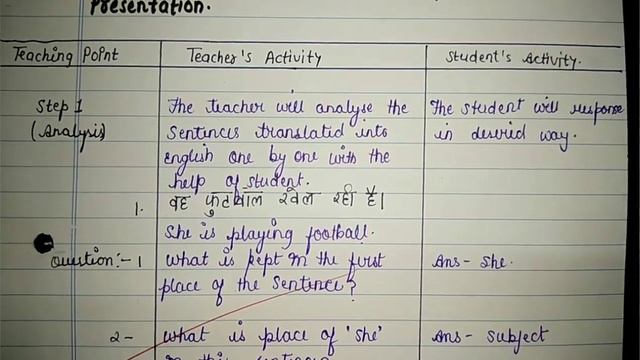 Presentation.
Teaching Point Teacher's Activity Student's Activity.
Step 1 The teacher will analyse the The student will response
(Analysis) Sentences translated into in desired way.
english one by one with the
help of student.
1. वह फुटबाल खेल रही है।
She is playing football.
Question:- 1 What is kept in the first Ans- She.
place of the Sentence?
2- What is place of 'She' Ans- Subject